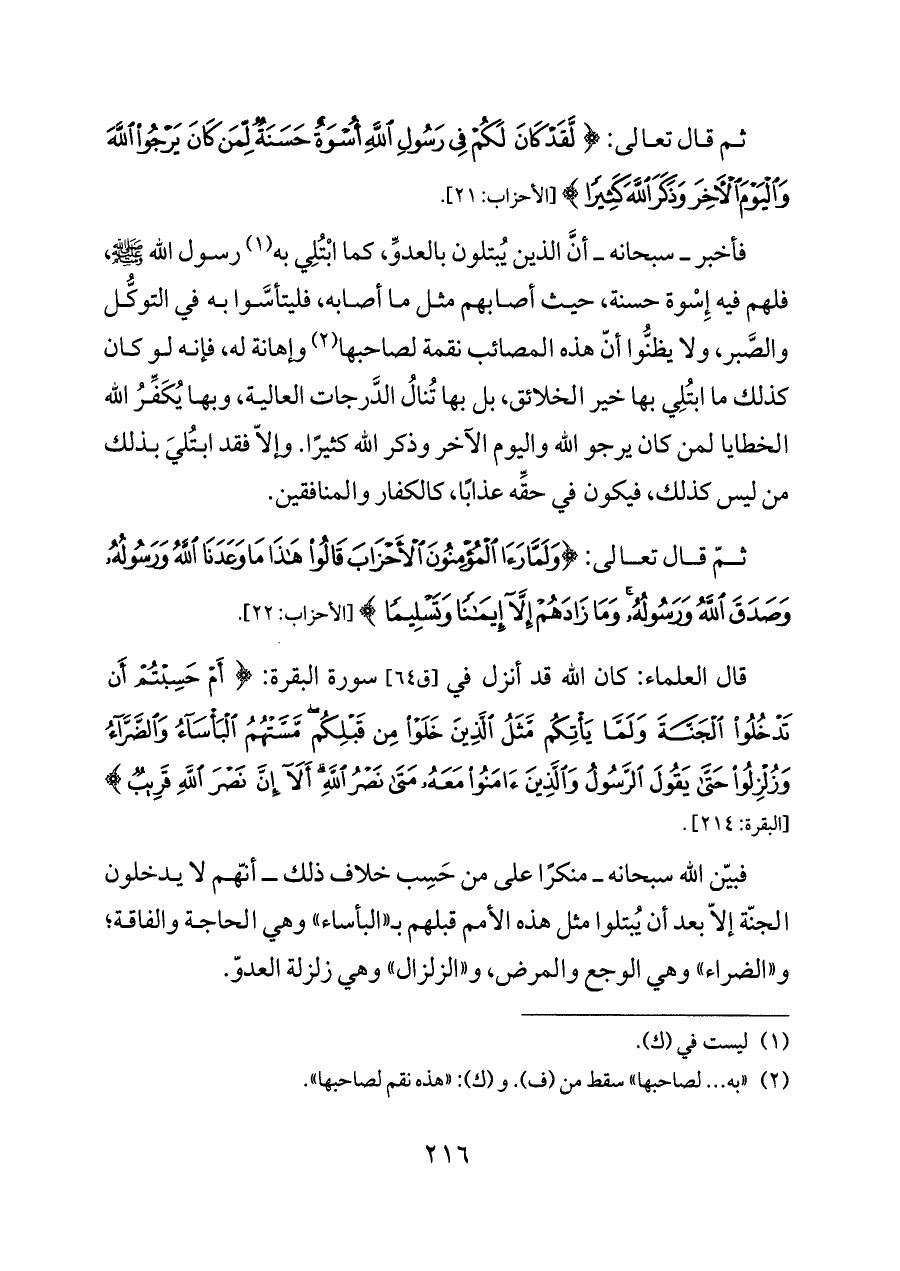 ثم قال تعالى: ﴿ لَّقَدْ كَانَ لَكُمْ فِى رَسُولِ ٱللَّهِ أُسْوَةٌ حَسَنَةٌ لِّمَن كَانَ يَرْجُوا۟ ٱللَّهَ
وَٱلْيَوْمَ ٱلْأَخِرَ وَذَكَرَ ٱللَّهَ كَثِيرًا ﴾ [الأحزاب: ٢١].
فأخبر ـ سبحانه ـ أنَّ الذين يُبتلون بالعدوِّ، كما ابْتُلِي به(١) رسول الله ﷺ،
فلهم فيه إِسْوة حسنة، حيث أصابهم مثل ما أصابه، فليتأسَّوا به في التوكُّل
والصَّبر، ولا يظنُّوا أنّ هذه المصائب نقمة لصاحبها(٢) وإهانة له، فإنه لو كان
كذلك ما ابتُلِي بها خير الخلائق، بل بها تُنالُ الدَّرجات العالية، وبها يُكَفِّرُ الله
الخطايا لمن كان يرجو الله واليوم الآخر وذكر الله كثيرًا. وإلاّ فقد ابتُليَ بذلك
من ليس كذلك، فيكون في حقِّه عذابًا، كالكفار والمنافقين.
ثمّ قال تعالى: ﴿وَلَمَّا رَءَا ٱلْمُؤْمِنُونَ ٱلْأَحْزَابَ قَالُوا۟ هَٰذَا مَا وَعَدَنَا ٱللَّهُ وَرَسُولُهُۥ
وَصَدَقَ ٱللَّهُ وَرَسُولُهُۥ ۚ وَمَا زَادَهُمْ إِلَّآ إِيمَٰنًا وَتَسْلِيمًا ﴾ [الأحزاب: ٢٢].
قال العلماء: كان الله قد أنزل في [ق٦٤] سورة البقرة: ﴿ أَمْ حَسِبْتُمْ أَن
تَدْخُلُوا۟ ٱلْجَنَّةَ وَلَمَّا يَأْتِكُم مَّثَلُ ٱلَّذِينَ خَلَوْا۟ مِن قَبْلِكُم ۖ مَّسَّتْهُمُ ٱلْبَأْسَآءُ وَٱلضَّرَّآءُ
وَزُلْزِلُوا۟ حَتَّىٰ يَقُولَ ٱلرَّسُولُ وَٱلَّذِينَ ءَامَنُوا۟ مَعَهُۥ مَتَىٰ نَصْرُ ٱللَّهِ ۗ أَلَآ إِنَّ نَصْرَ ٱللَّهِ قَرِيبٌ ﴾
[البقرة: ٢١٤].
فبيّن الله سبحانه ـ منكرًا على من حَسِب خلاف ذلك ـ أنّهم لا يدخلون
الجنّة إلاّ بعد أن يُبتلوا مثل هذه الأمم قبلهم بـ«البأساء» وهي الحاجة والفاقة؛
و«الضراء» وهي الوجع والمرض، و«الزلزال» وهي زلزلة العدوّ.
(١) ليست في (ك).
(٢) «به... لصاحبها» سقط من (ف). و (ك): «هذه نقم لصاحبها».
٢١٦